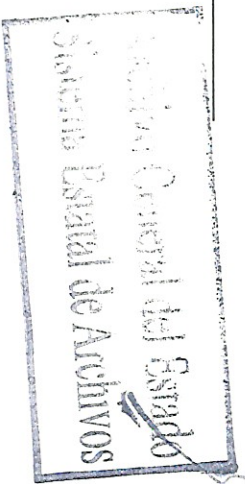 General del Estado
Sistema Estatal de Archivos